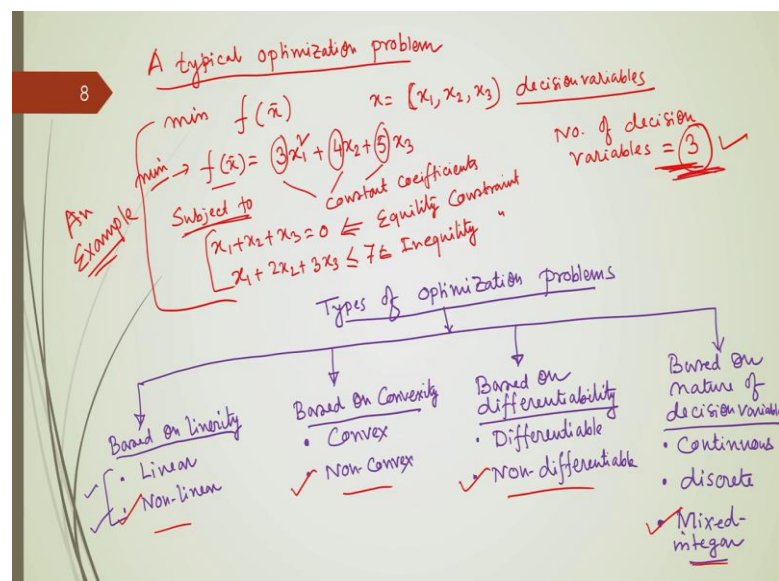 A typical ophimization problem
8
min f(x̄) x = [x₁, x₂, x₃] decision variables
No. of decision
variables = 3
min → f(x̄) = 3x₁² + 4x₂ + 5x₃
constant coefficients
An
Example
Subject to
x₁+x₂+x₃=0 ⇐ Equility Constraint
x₁+2x₂+3x₃ ≤ 7 ⇐ Inequility "
Types of ophimization problems
Based on linerity
• Linear
• Non-linear
Based on Convexity
• Convex
• Non-Convex
Based on
differentiability
• Differendiable
• Non-differentiable
Based on
nature of
decision variable
• Continuous
• discrete
• Mixed-
integar